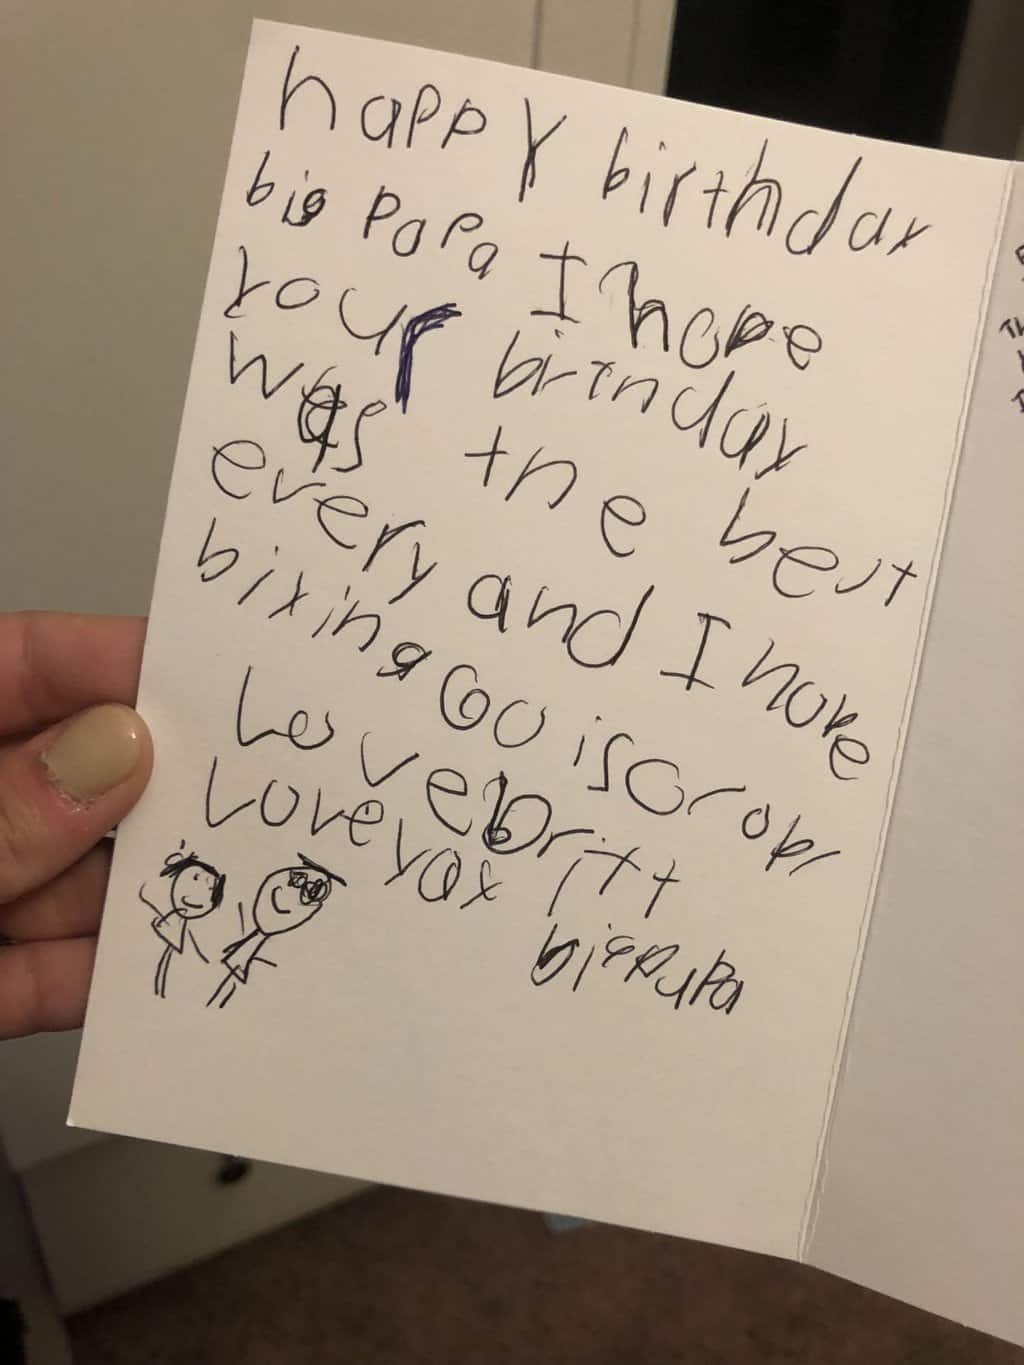 happy birthday
big papa I hope
your birthday
was the best
every and I hope
bixing 60 is
Love britt
Love you
bigpapa